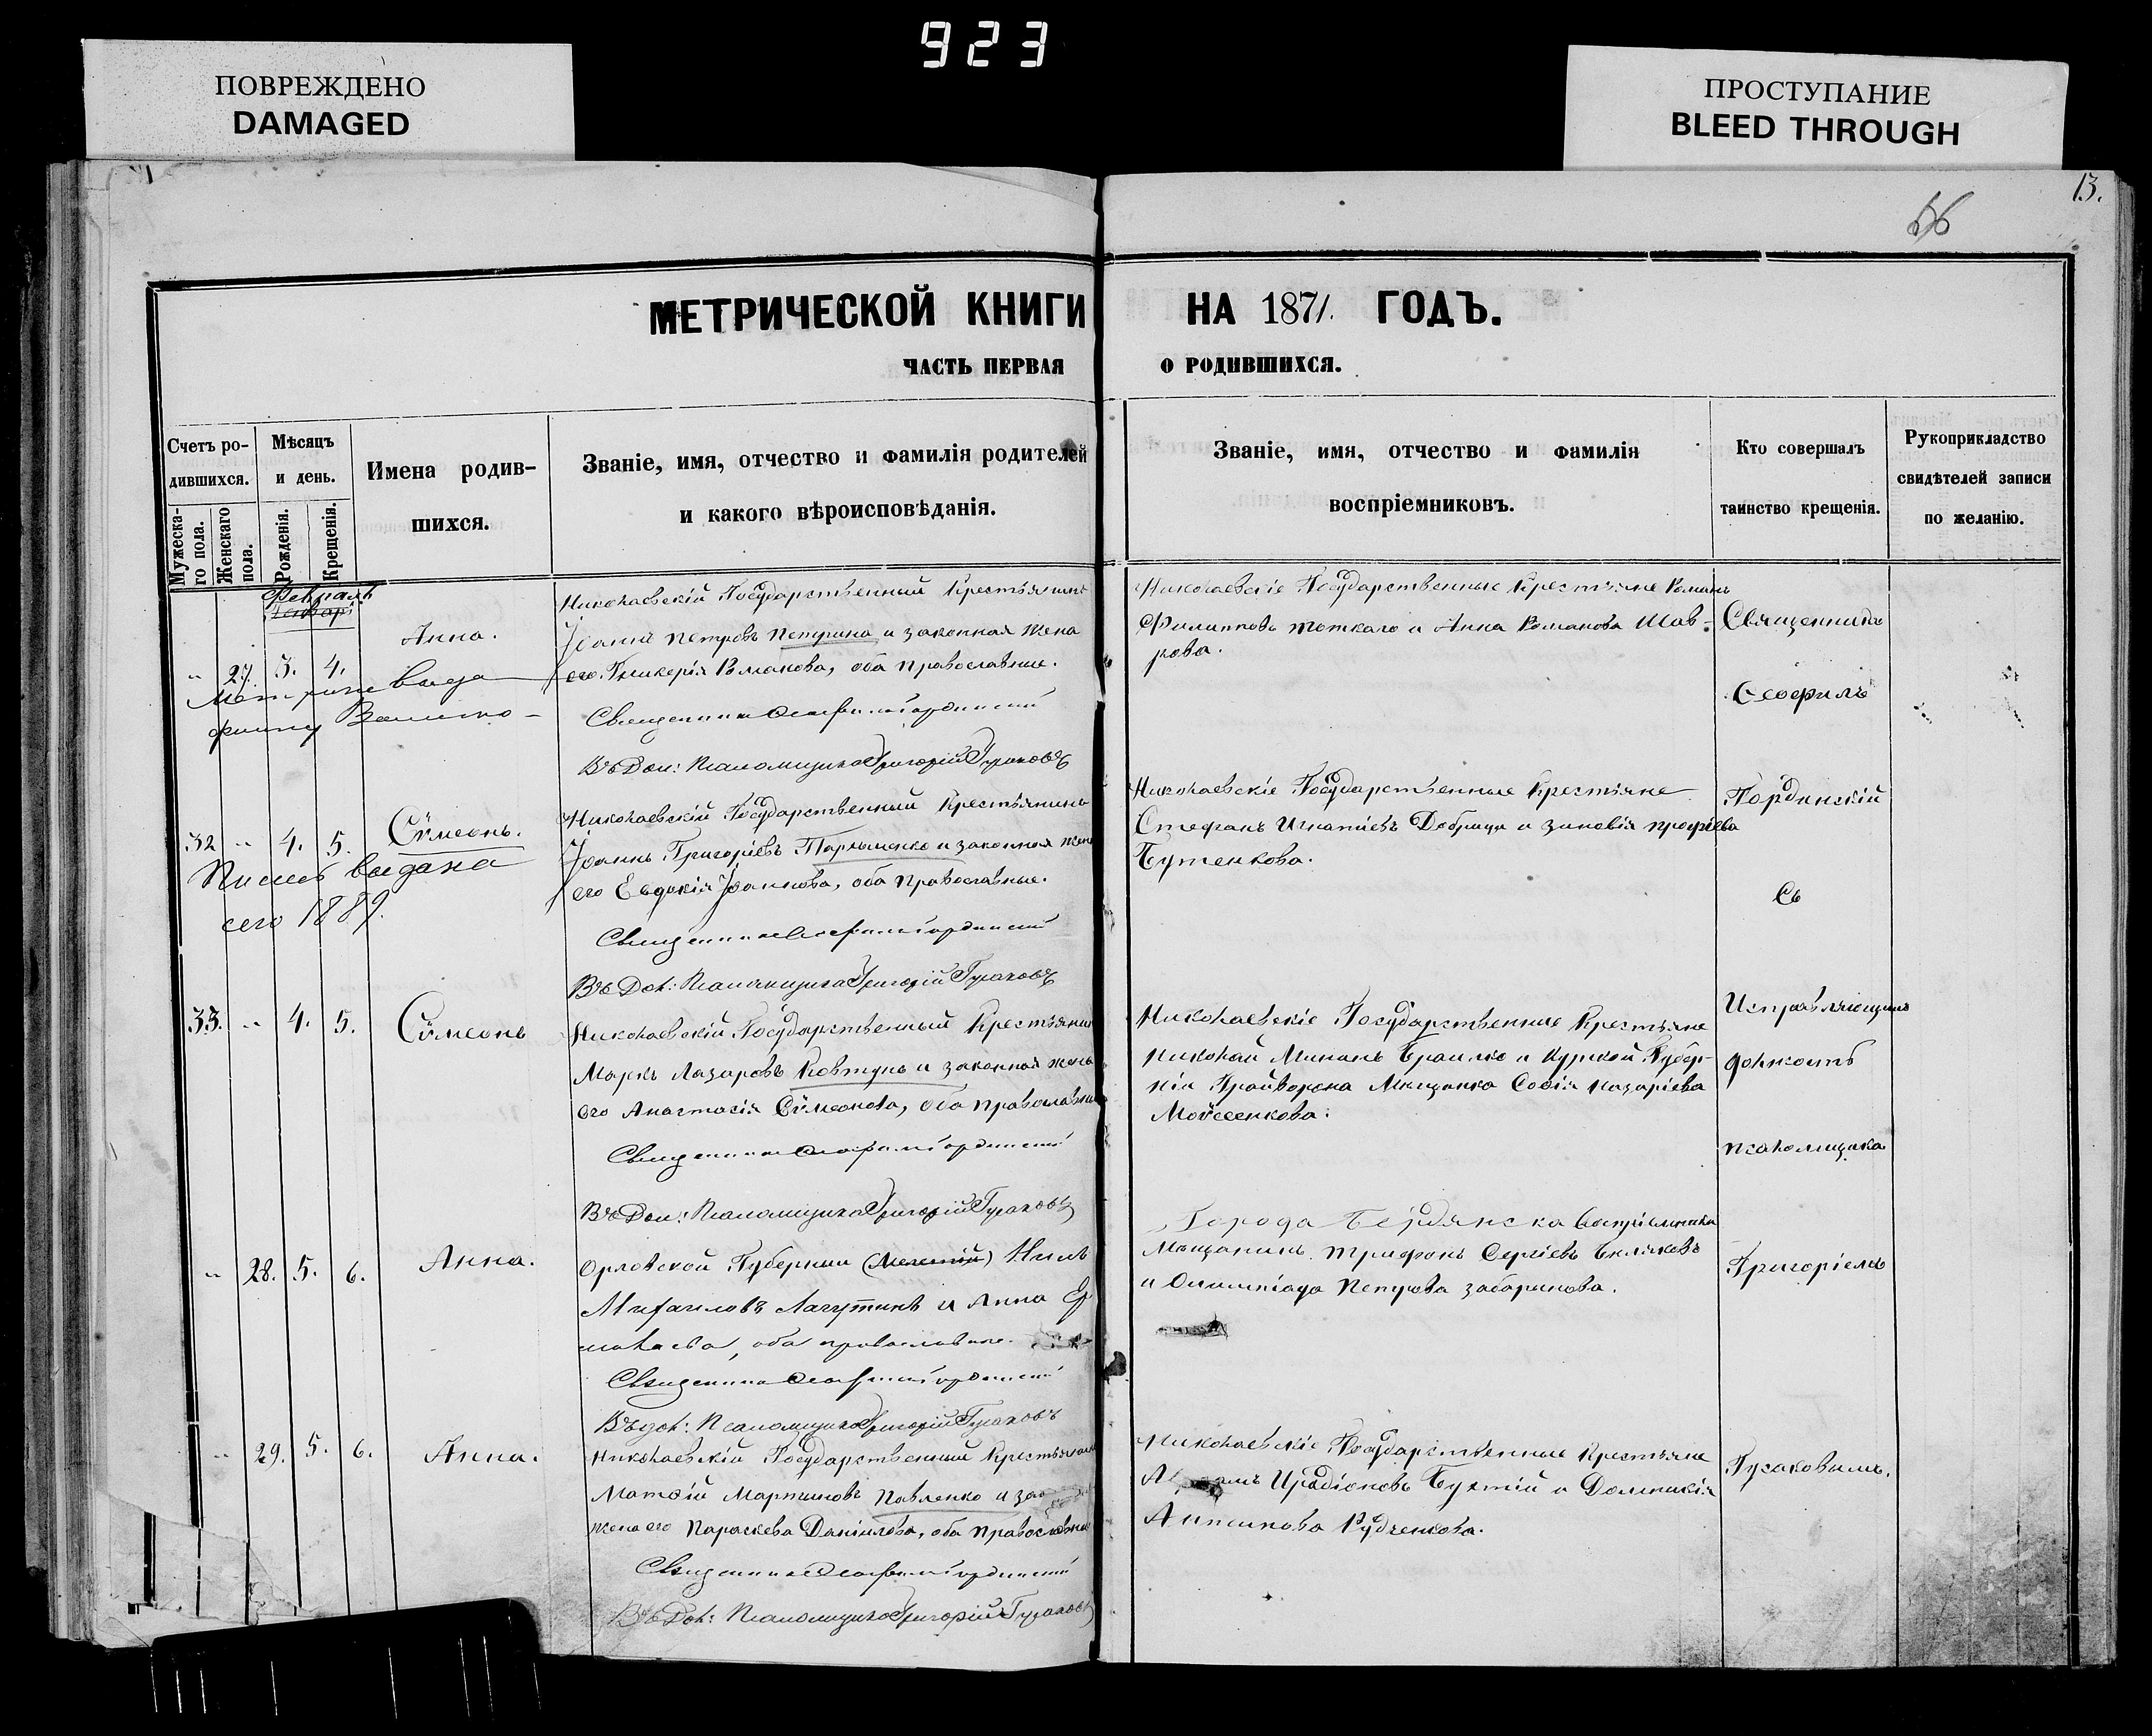 923
ПОВРЕЖДЕНО
DAMAGED
ПРОСТУПАНИЕ
BLEED THROUGH
13.
56
МЕТРИЧЕСКОЙ КНИГИ НА 1871. ГОДЪ.
ЧАСТЬ ПЕРВАЯ О РОДИВШИХСЯ.
Счетъ ро-
дившихся.
Мужеска-
го пола.
Женскаго
пола.
Мѣсяцъ
и день.
Рожденія.
Крещенія.
Имена родив-
шихся.
Званіе, имя, отчество и фамилія родителей
и какого вѣроисповѣданія.
Званіе, имя, отчество и фамилія
воспріемниковъ.
Кто совершалъ
таинство крещенія.
Рукоприкладство
свидѣтелей записи
по желанію.
Февраль
" 27. 3. 4.
Анна.
Николаевскій Государственный Крестьянинъ
Іоаннъ Петровъ Петрина и законная жена
его Гликерія Романова, оба православные.
Священникъ Ѳеофилъ Гординскій
Въ Дол: Псаломщика Григорій Гусаковъ
Николаевскіе Государственные Крестьяне Романъ
Филипповъ и Анна Романова Шав-
рова.
32 " 4. 5.
Сѵмеонъ.
выдана
сего 1889.
Николаевскій Государственный Крестьянинъ
Іоаннъ Григоріевъ Пархоменко и законная жена
его Евдокія Іоаннова, оба Православные.
Священникъ Ѳеофилъ Гординскій
Въ Дол: Псаломщика Григорій Гусаковъ
Николаевскіе Государственные Крестьяне
Стефанъ Игнатіевъ Добрица и Зиновія
Бутенкова.
33. " 4. 5.
Сѵмеонъ
Николаевскій Государственный Крестьянинъ
Маркъ Лазаровъ Ковтунъ и законная жена
его Анастасія Сѵмеонова, оба православные
Священникъ Ѳеофилъ Гординскій
Въ Дол: Псаломщика Григорій Гусаковъ
Николаевскіе Государственные Крестьяне
Николай и Курской Губер-
ніи Грайворона Мѣщанка Софія Назаріева
Моѵсеенкова.
" 28. 5. 6.
Анна.
Орловской Губерніи Нилъ
Михаиловъ Лагутинъ и Анна Ер
молаева, оба православные.
Священникъ Ѳеофилъ Гординскій
Въ дол: Псаломщика Григорій Гусаковъ
Города Бердянска
Мѣщанинъ Трифонъ Сергіевъ
и Олимпіада Петрова Забаринова.
" 29. 5. 6.
Анна.
Николаевскій Государственный Крестьянинъ
Матѳій Мартиновъ Павленко и
жена его Параскева Даніилова, оба православные
Священникъ Ѳеофилъ Гординскій
Въ Дол: Псаломщика Григорій Гусаковъ
Николаевскіе Государственные Крестьяне
Иродіоновъ и Домникія
Антипова Рудченкова.
Священникъ
Ѳеофилъ
Гординскій
Съ
Исправляющимъ
должность
псаломщика
Григоріемъ
Гусаковымъ.